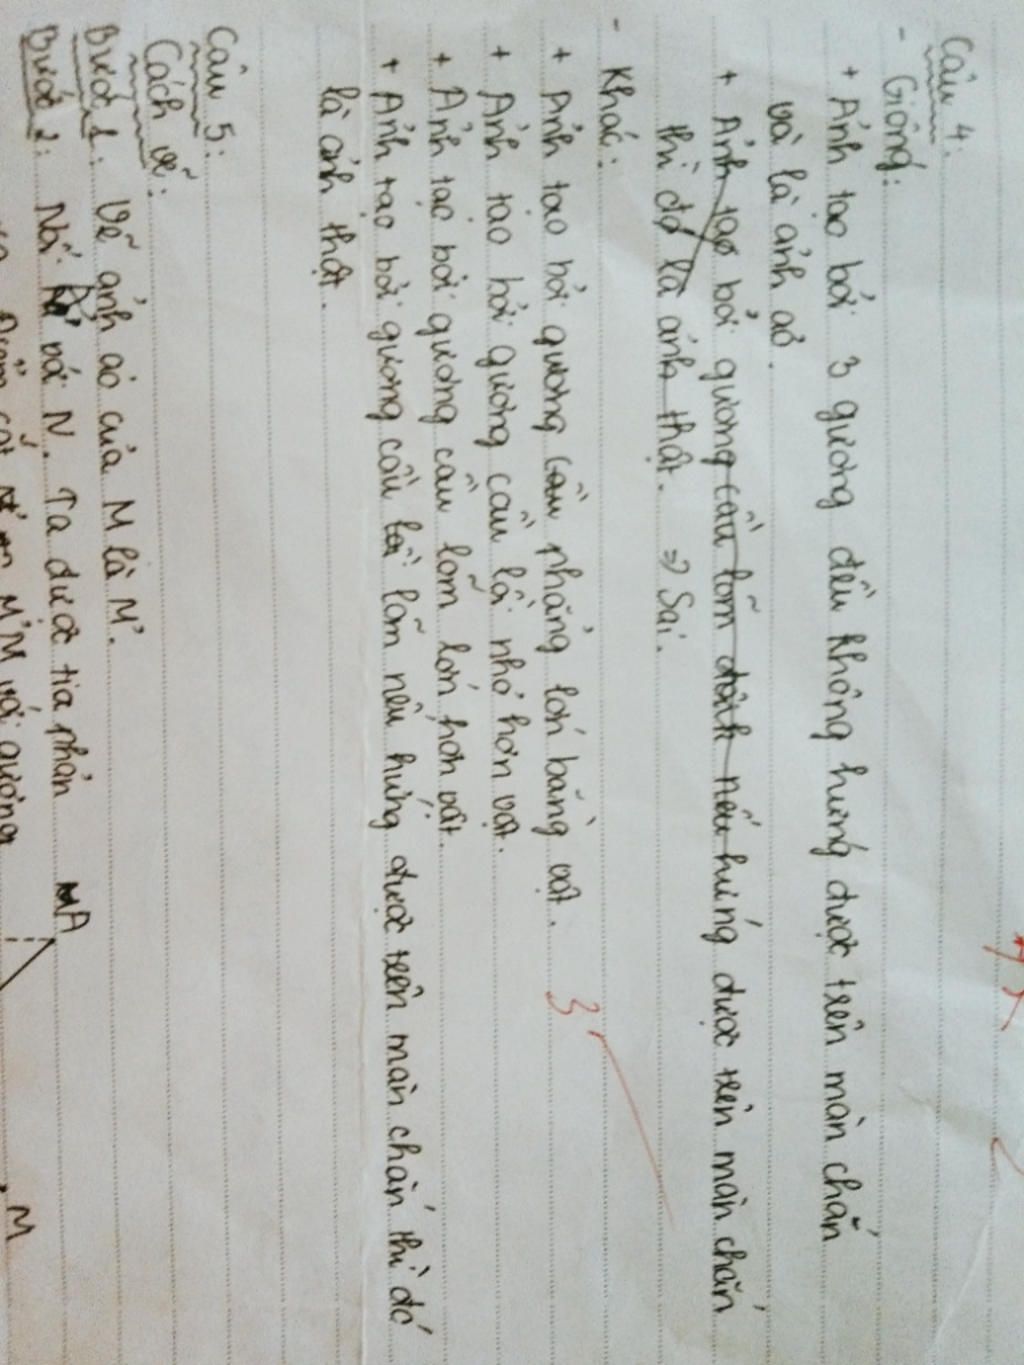 Câu 4:
- Giống:
+ Ảnh tạo bởi 3 gương đều không hứng được trên màn chắn
và là ảnh ảo.
+ Ảnh tạo bởi gương cầu lõm nếu hứng được trên màn chắn
thì đó là ảnh thật. => Sai.
- Khác:
+ Ảnh tạo bởi gương phẳng lớn bằng vật.
+ Ảnh tạo bởi gương cầu lồi nhỏ hơn vật.
+ Ảnh tạo bởi gương cầu lõm lớn hơn vật.
+ Ảnh tạo bởi gương cầu lõm nếu hứng được trên màn chắn thì đó
là ảnh thật.
3
Câu 5:
Cách vẽ:
Bước 1: Vẽ ảnh ảo của M là M'.
Bước 2: Nối với N. Ta được tia phản
A
M'M với gương
M